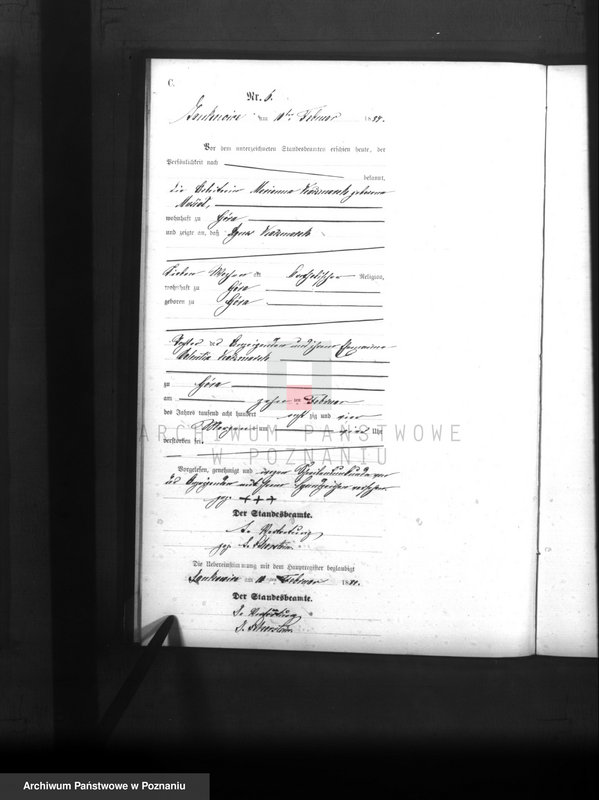 C.
Nr. 6.
am 10ten Februar 1884.
Vor dem unterzeichneten Standesbeamten erschien heute, der
Persönlichkeit nach
bekannt,
die Arbeiterin Marianna Kaczmarek geborene
wohnhaft zu Góra
und zeigte an, daß Agnes Kaczmarek
Sieben Wochen alt katholischer Religion,
wohnhaft zu Góra
geboren zu Góra
Tochter der Anzeigenden und ihres Ehemannes
Valentin Kaczmarek
zu Góra
am zehnten Februar
des Jahres tausend acht hundert achtzig und vier
Morgens um Uhr
verstorben sei.
Vorgelesen, genehmigt und wegen Schreibensunkunde von
der Anzeigenden mit ihrem Handzeichen versehen
gez. +++
Der Standesbeamte.
In Vertretung
gez.
Die Uebereinstimmung mit dem Hauptregister beglaubigt
am 10 Februar 1884.
Der Standesbeamte.
In Vertretung
ARCHIWUM PAŃSTWOWE
W POZNANIU
Archiwum Państwowe w Poznaniu